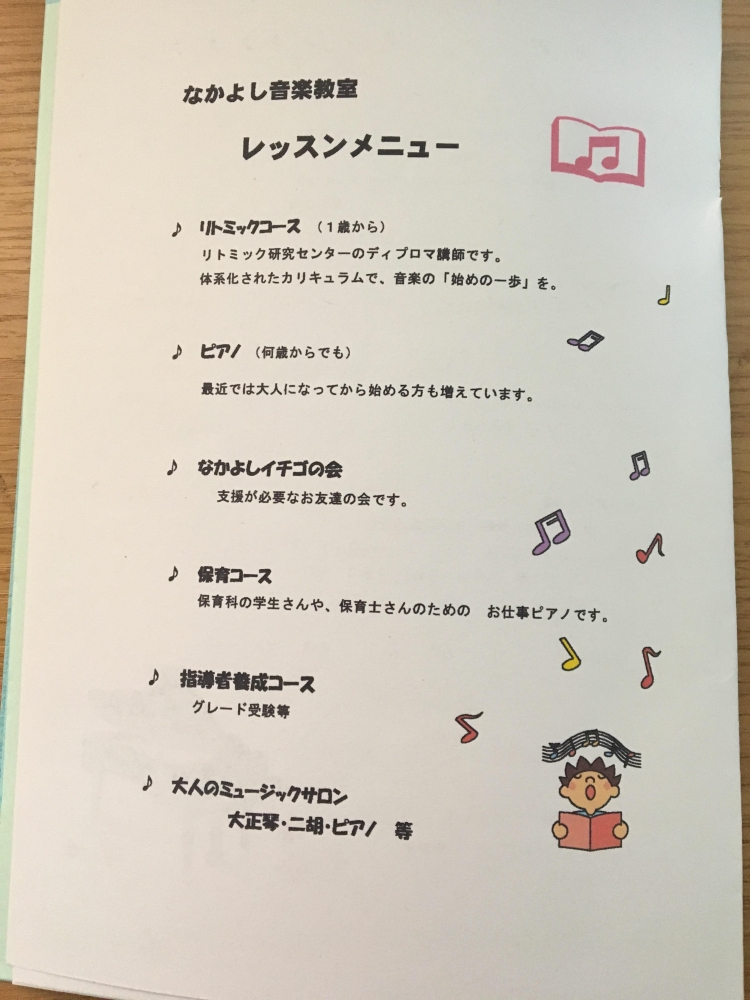 なかよし音楽教室
レッスンメニュー
♪ リトミックコース （１歳から）
リトミック研究センターのディプロマ講師です。
体系化されたカリキュラムで、音楽の「始めの一歩」を。
♪ ピアノ （何歳からでも）
最近では大人になってから始める方も増えています。
♪ なかよしイチゴの会
支援が必要なお友達の会です。
♪ 保育コース
保育科の学生さんや、保育士さんのための　お仕事ピアノです。
♪ 指導者養成コース
グレード受験等
♪ 大人のミュージックサロン
大正琴・二胡・ピアノ　等